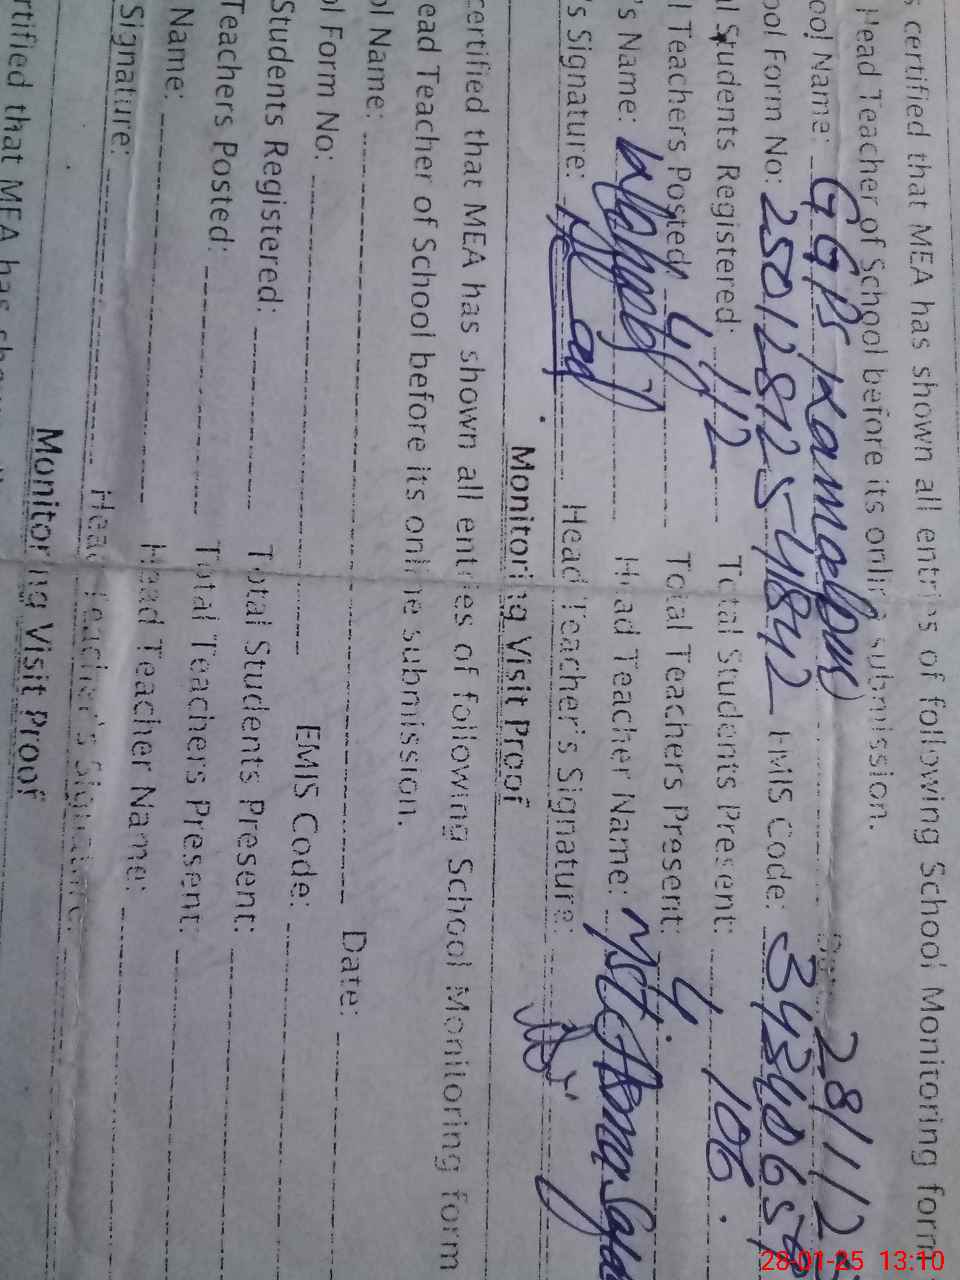 s certified that MEA has shown all entries of following School Monitoring form
Head Teacher of School before its online submission.
ool Name: GGPS Kamalpur 28/1/2
ool Form No: 25012812254842 EMIS Code:
al Students Registered: 112 Total Students Present: 106
l Teachers Posted: 4 Total Teachers Present: 4
's Name: Head Teacher Name: Mst:
's Signature: Head Teacher's Signature:
Monitoring Visit Proof
certified that MEA has shown all entries of following School Monitoring form
ead Teacher of School before its online submission.
ol Name: Date:
ol Form No: EMIS Code:
Students Registered: Total Students Present:
Teachers Posted: Total Teachers Present:
Name: Head Teacher Name:
Signature: Head Teacher's Signature:
Monitoring Visit Proof
rtified that MEA has
28-01-25 13:10